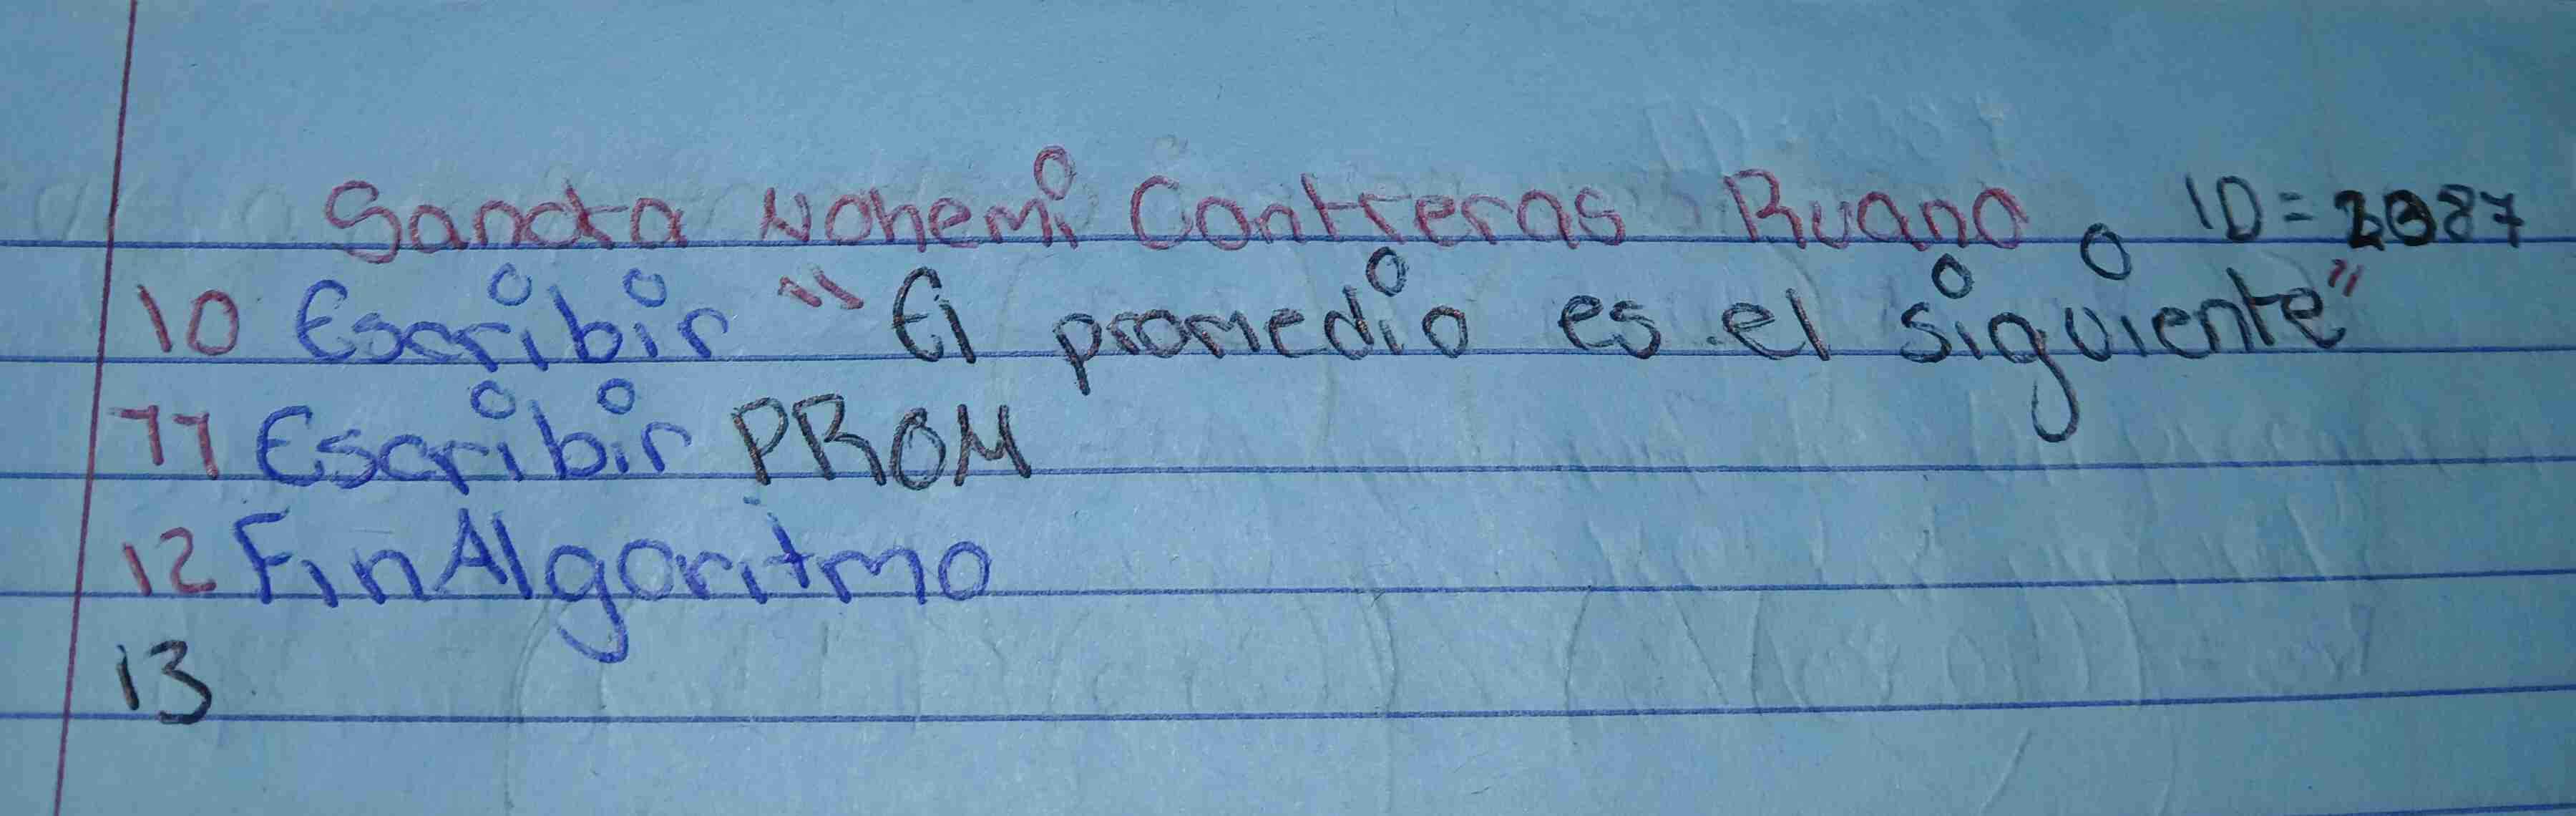 Sandra Nohemi Contreras Ruano ID=2387
10 Escribir "El promedio es el siguiente"
11 Escribir PROM
12 FinAlgoritmo
13